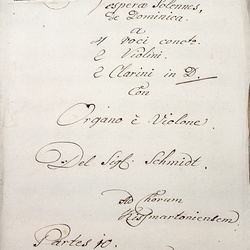 Vesperæ Solennes,
de Dominica.
a
4 voci conc:te.
2 Violini.
2 Clarini in D.
Con
Organo è Violone.
Del Sig: Schmidt.
ad Chorum
Kismartoniensem
Partes 10.